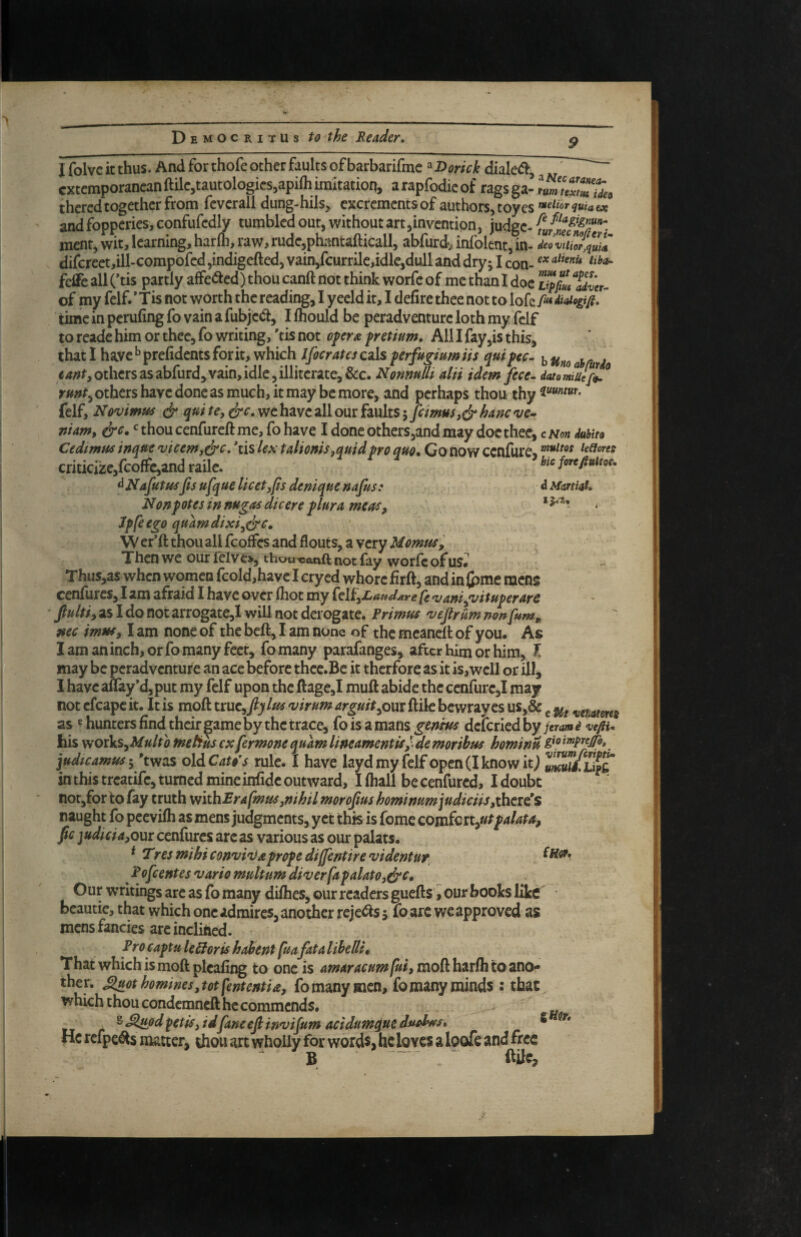 Democritus to the Reader. 9
I solve it thus. And for those other faults of barbarisme a Dorick dialect,
extemporanean stile, tautologies, apish imitation, a rapsodie of rags ga-
thered together from severall dung-hils, excrements of authors, toyes
and fopperies, confusedly tumbled out, without art, invention, judge-
ment, wit, learning, harsh, raw, rude, phantasticall, absurd, insolent, in-
discreet, ill-composed, indigested, vain, scurrile, idle, dull and dry; I con-
fesse all ('tis partly affected) thou canst not think worse of me than I doe
of my self. 'Tis not worth the reading, I yeeld it, I desire thee not to lose
time in perusing so vain a subject, I should be peradventure loth my self
to reade him or thee, so writing, 'tis not operæ pretium. All I say, is this,
that I have b presidents for it, which Isocrates cals perfugium iis qui pec-
cant, others as absurd, vain, idle, illiterate, &c. Nonnulli alii idem fece-
runt, others have done as much, it may be more, and perhaps thou thy
self, Novimus & qui te, &c. we have all our faults; scimus, & hanc ve-
niam, &c. c thou censurest me, so have I done others, and may doe thee,
Cedimus inque vicem, &c. 'tis lex talionis, quid pro quo. Go now censure,
criticize, scoffe, and raile.
d Nasutus sis usque licet, sis denique nasus:
Non potes in nugas dicere plura meas,
Ipse ego quàm dixi, &c.
Wer'st thou all scoffes and flouts, a very Momus,
Then we our selves, thou canst not say worse of us.
Thus, as when women scold, have I cryed whore first, and in some mens
censures, I am afraid I have over shot my self, Laudare se vani, vituperare
stulti, as I do not arrogate, I will not derogate. Primus vestrûm non sum,
nec imus, I am none of the best, I am none of the meanest of you. As
I am an inch, or so many feet, so many parasanges, after him or him, I
may be peradventure an ace before thee. Be it therfore as it is, well or ill,
I have assay'd, put my self upon the stage, I must abide the censure, I may
not escape it. It is most true, stylus virum arguit, our stile bewrayes us, &
as e hunters find their game by the trace, so is a mans genius descried by
his works, Multò meliùs ex sermone quàm lineamentis, de moribus hominũ
judicamus; 'twas old Cato's rule. I have layd my self open (I know it)
in this treatise, turned mine inside outward, I shall be censured, I doubt
not, for to say truth with Erasmus, nihil morosius hominum judiciis, there's
naught so peevish as mens judgments, yet this is some comfort, ut palata,
sic judicia, our censures are as various as our palats.
f Tres mihi convivæ prope dissentire videntur
Poscentes vario multum diversa palato, &c.
Our writings are as so many dishes, our readers guests, our books like
beautie, that which one admires, another rejects; so are we approved as
mens fancies are inclined.
Pro captu lectoris habent sua fata libelli.
That which is most pleasing to one is amaracum sui, most harsh to ano-
ther. Quot homines, tot sententiæ, so many men, so many minds: that
which thou condemnest he commends.
g Quod petis, id sane est invisum acidumque duobus.
He respects matter, thou art wholly for words, he loves a loose and free
B stile,
a Nec aranea-
rum textus ideo
melior quia ex
se fila gignun-
tur, nec noster i-
deo vilior, quia
ex alienis liba-
mus ut apes.
Lipsius adver-
sus dialogist.
b Uno absurdo
dato mille se-
quuntur.
c Non dubito
multos lectores
hic fore stultos.
d Martial.
13. 2.
e Ut venatores
feram è vesti-
gio impresso,
virum scripti-
unculâ. Lips.
f Hor.
g Hor.